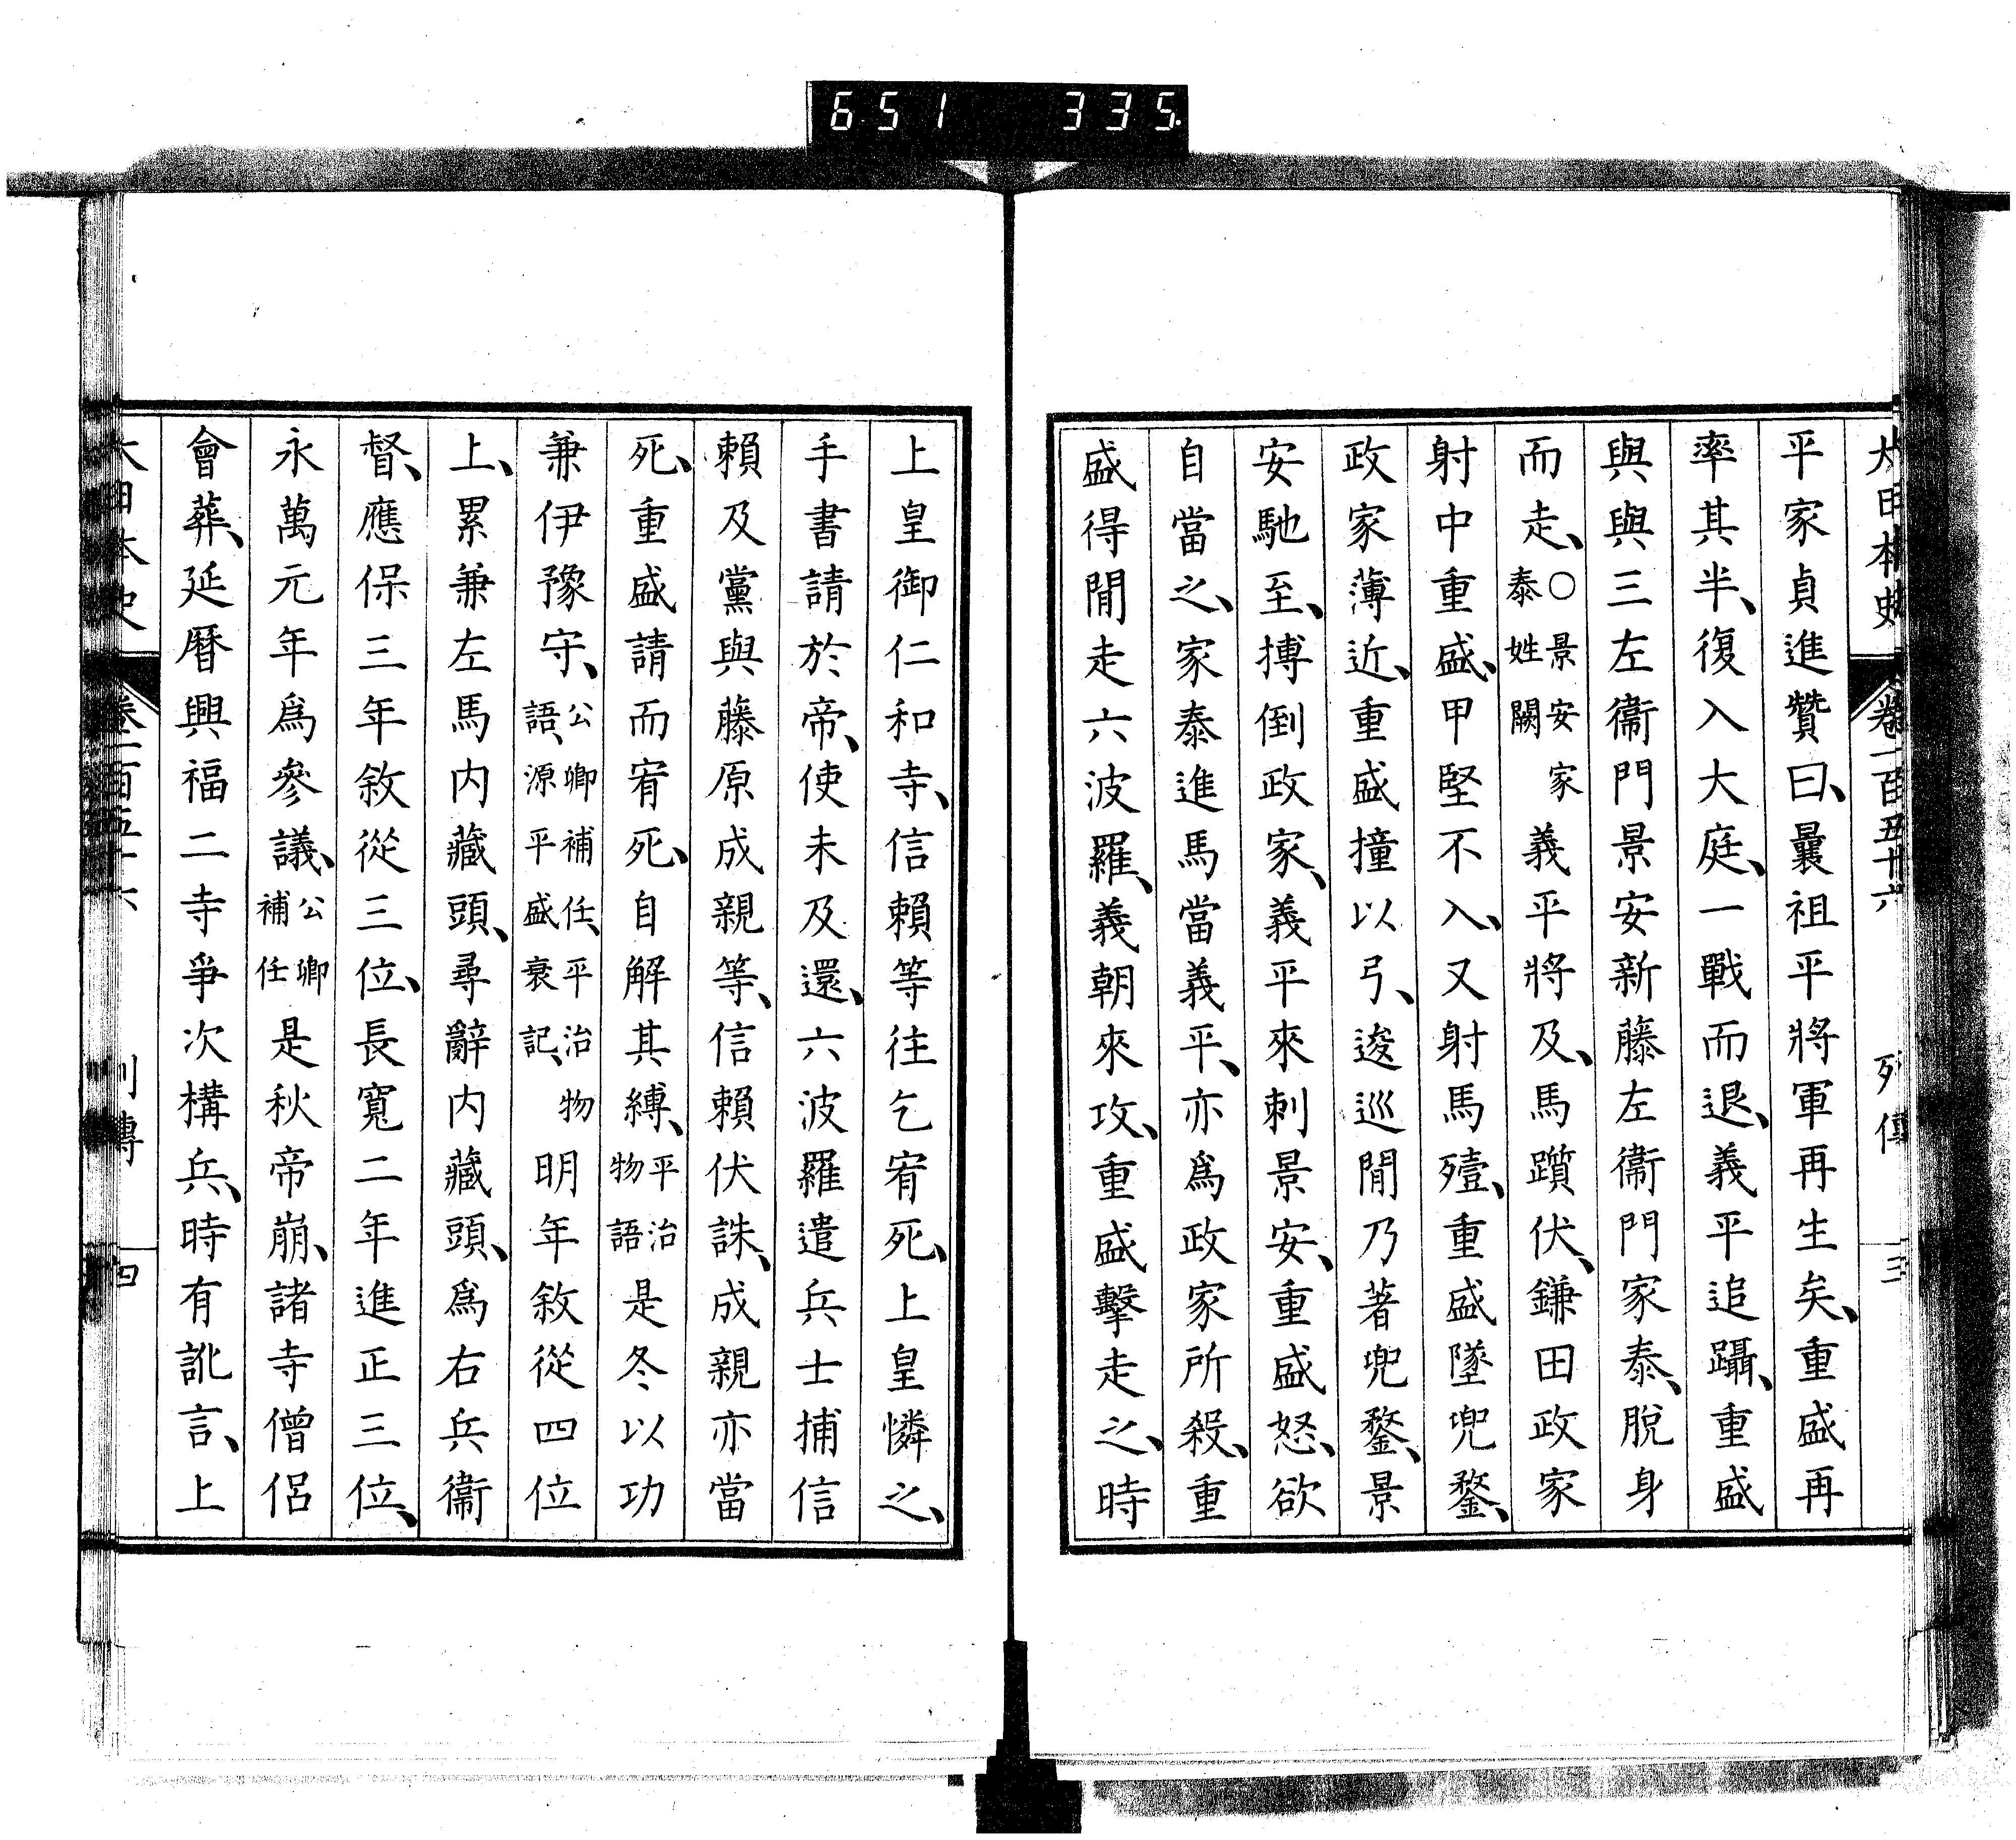 651 335
大日本史 卷一百五十六 列傳 三
平家貞進贊曰、曩祖平將軍再生矣、重盛再
率其半、復入大庭、一戰而退、義平追躡、重盛
與與三左衞門景安新藤左衞門家泰、脫身
而走、○景安家泰姓闕義平將及、馬躓伏、鎌田政家
射中重盛、甲堅不入、又射馬殪、重盛墜兜鍪、
政家薄近、重盛撞以弓、逡巡閒乃著兜鍪、景
安馳至、搏倒政家、義平來刺景安、重盛怒、欲
自當之、家泰進馬當義平、亦爲政家所殺、重
盛得閒走六波羅、義朝來攻、重盛擊走之、時
上皇御仁和寺、信賴等往乞宥死、上皇憐之、
手書請於帝、使未及還、六波羅遣兵士捕信
賴及黨與藤原成親等、信賴伏誅、成親亦當
死、重盛請而宥死、自解其縛、平治物語是冬以功
兼伊豫守、公卿補任、平治物語、源平盛衰記、明年敘從四位
上、累兼左馬内藏頭、尋辭内藏頭、爲右兵衞
督、應保三年敘從三位、長寬二年進正三位、
永萬元年爲參議、公卿補任是秋帝崩、諸寺僧侶
會葬、延曆興福二寺爭次構兵、時有訛言、上
大日本史 卷一百五十六 列傳 四